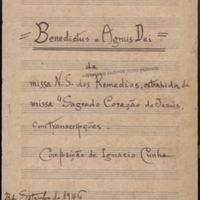 Benedictus e Agnus Dei
da
missa N. S. dos Remedios, extrahida da
missa "Sagrado Coração de Jesús,
com transcripções.
Composição de Ignacio Cunha
Setembro de 1946